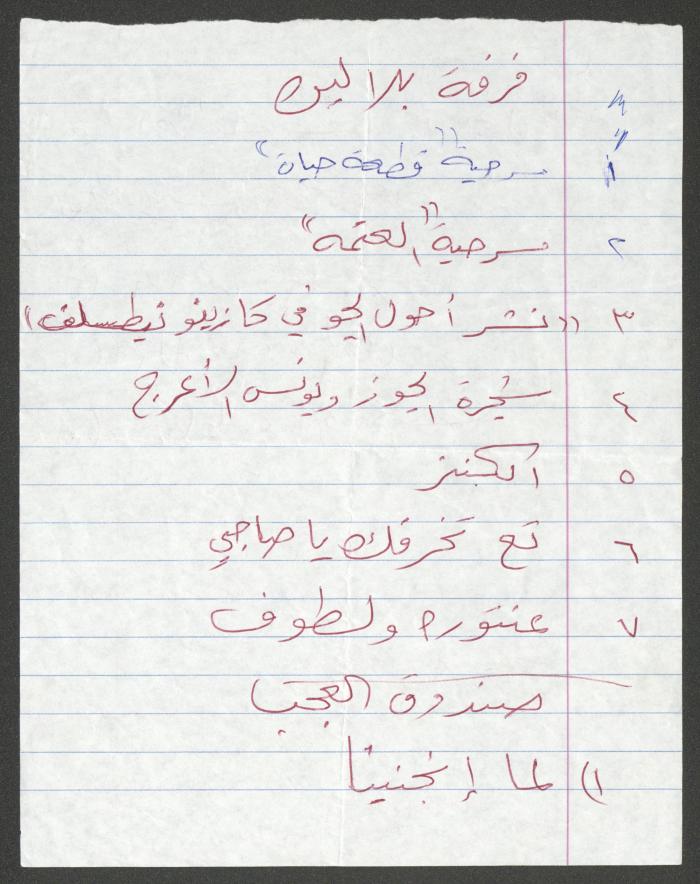 فرقة بلالين
١ مسرحية "قطعة حياة"
٢ مسرحية "العتمة"
٣ "نشر أحول الجو في كازينو نيطسلف"
٤ شجرة الجوز ويونس الأعرج
٥ الكنز
٦ تع تخرفك يا صاحبي
٧ عنتورة ولطوف
صندوق العجب
١) لما إنجنينا